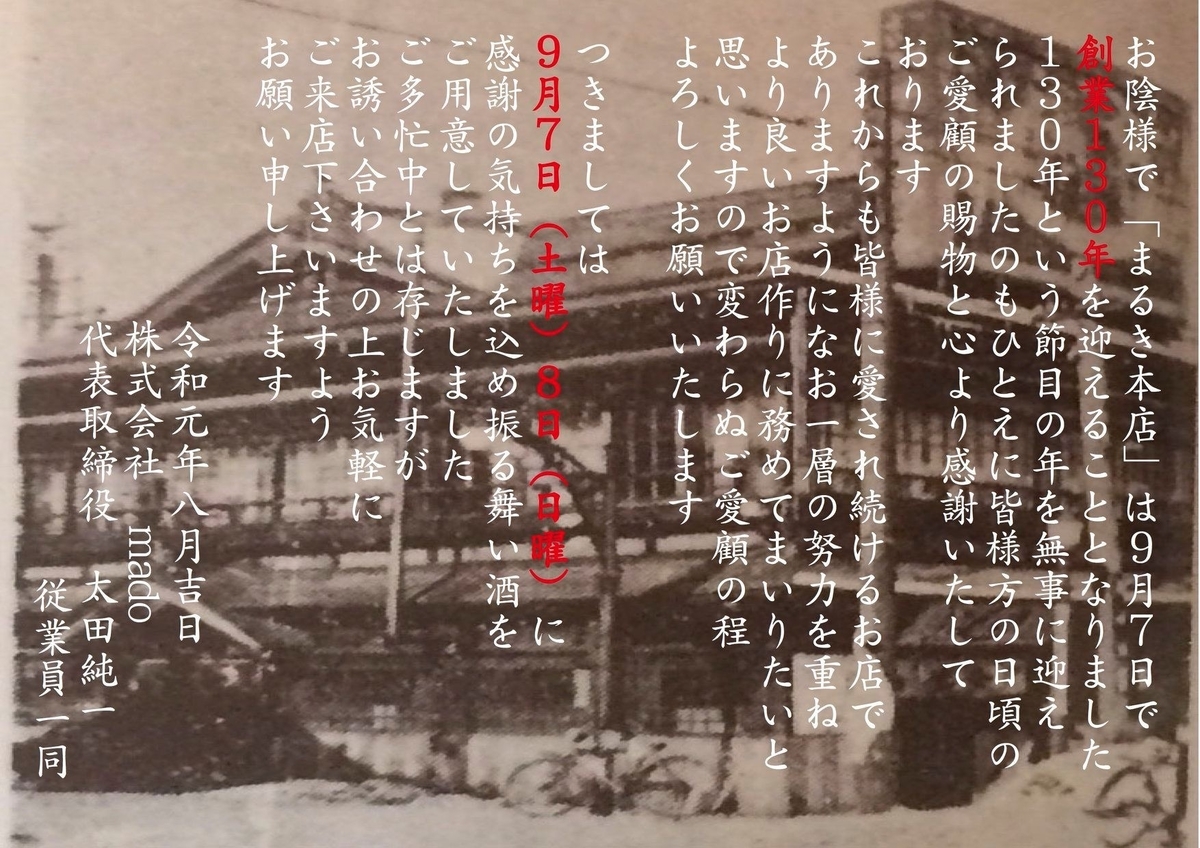 お陰様で「まるき本店」は９月７日で
創業１３０年を迎えることとなりました
１３０年という節目の年を無事に迎え
られましたのもひとえに皆様方の日頃の
ご愛顧の賜物と心より感謝いたして
おります
これからも皆様に愛され続けるお店で
ありますようになお一層の努力を重ね
より良いお店作りに務めてまいりたいと
思いますので変わらぬご愛顧の程
よろしくお願いいたします
つきましては
９月７日（土曜）８日（日曜）に
感謝の気持ちを込め振る舞い酒を
ご用意していたしました
ご多忙中とは存じますが
お誘い合わせの上お気軽に
ご来店下さいますよう
お願い申し上げます
令和元年八月吉日
株式会社　mado
代表取締役　太田純一
従業員一同